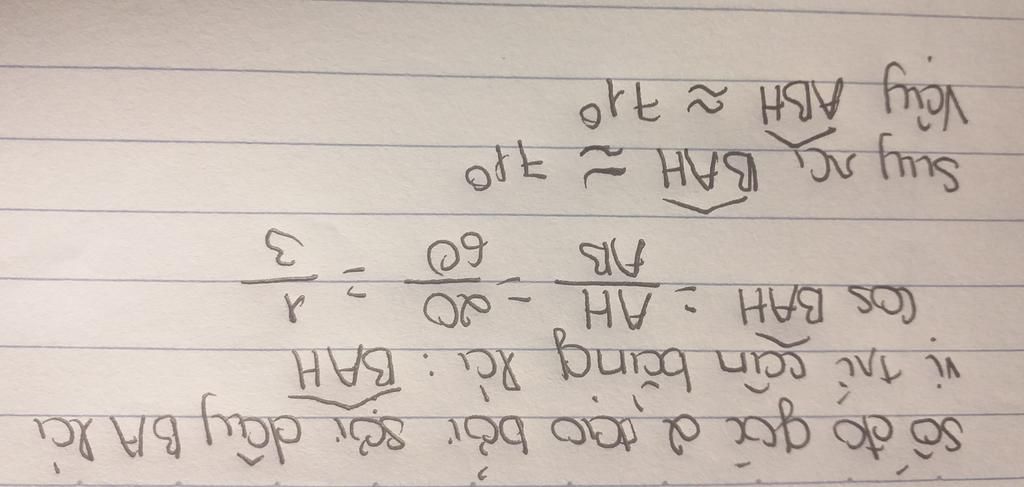 Số đo góc α tạo bởi sợi dây BA và
vị trí cân bằng là: BAH
cos BAH = AH/AB = 20/60 = 1/3
Suy ra BAH ≈ 71°
Vậy ABH ≈ 71°